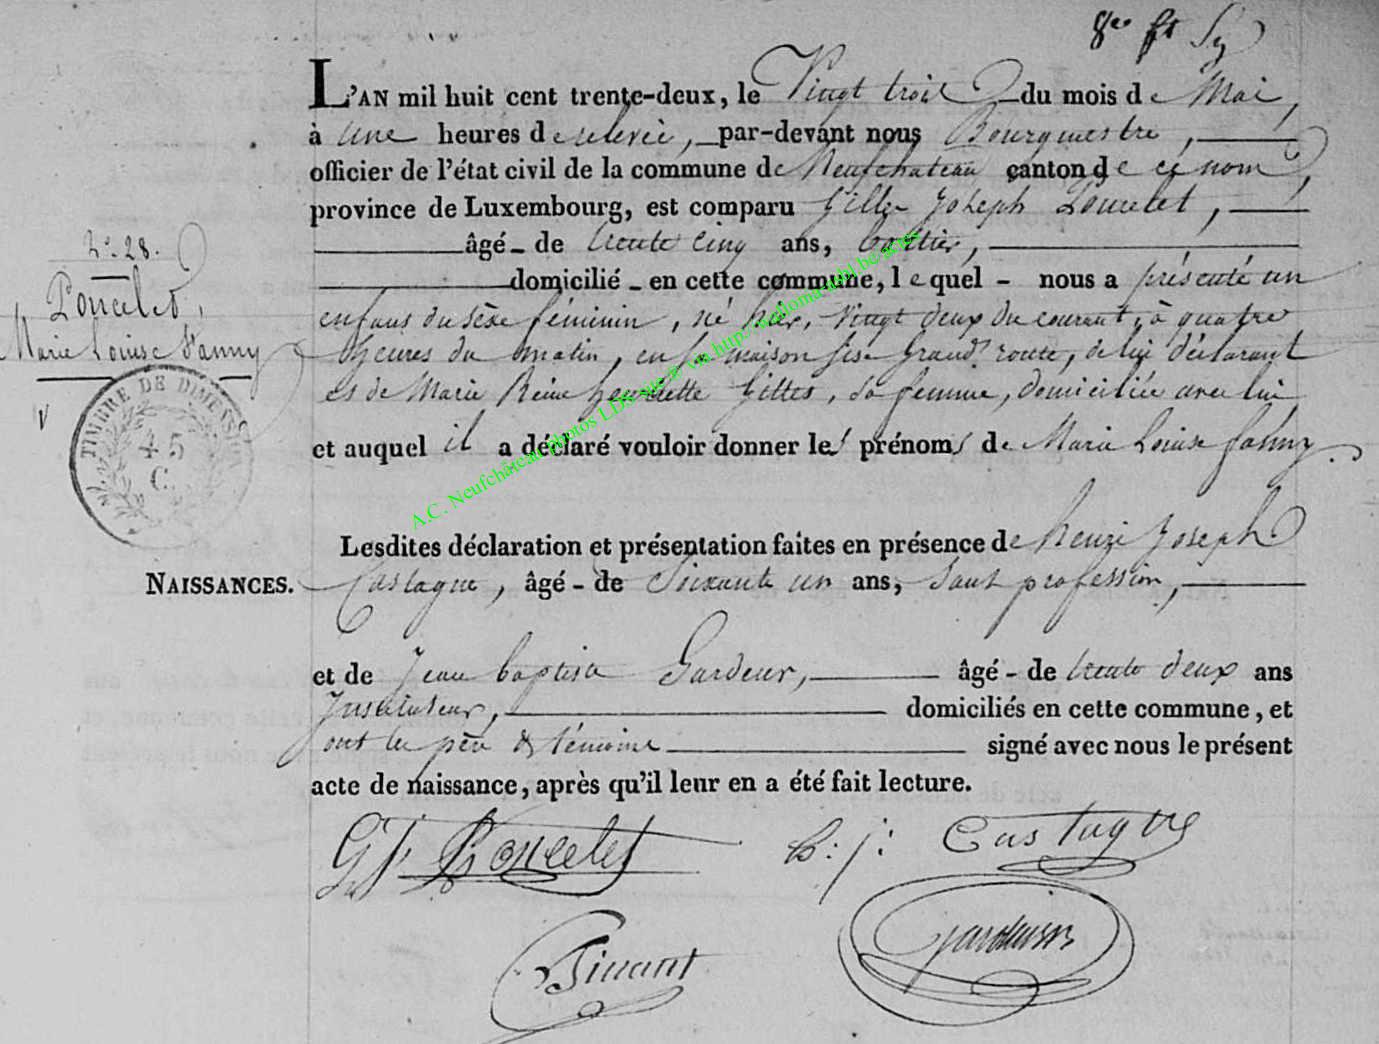 L'AN mil huit cent trente-deux, le Vingt trois du mois de Mai,
à une heures de relevée, par-devant nous Bourgmestre,
officier de l'état civil de la commune de Neufchateau canton de ce nom,
province de Luxembourg, est comparu Gilles Joseph Poncelet,
âgé de trente cinq ans,
domicilié en cette commune, lequel nous a présenté un
enfant du sèxe féminin, né hier, vingt deux du courant, à quatre
heures du matin, en sa maison sise Grand' route, de lui déclarant
et de Marie Reine henriette Gilles, sa femme, domiciliée avec lui,
et auquel il a déclaré vouloir donner les prénoms de Marie Louise fanny.
Nº 28.
Poncelet,
Marie Louise Fanny
TIMBRE DE DIMENSION
45
C.
Lesdites déclaration et présentation faites en présence de henri Joseph
NAISSANCES.
Castagne, âgé de Soixante un ans, sans profession,
et de Jean baptiste Gardeur, âgé de trente deux ans
Instituteur, domiciliés en cette commune, et
ont les père & témoins signé avec nous le présent
acte de naissance, après qu'il leur en a été fait lecture.
G J Poncelet
h: j: Castagne
A.C. Neufchâteau photos LDS site @ via http://walloma-asbl.be/actes